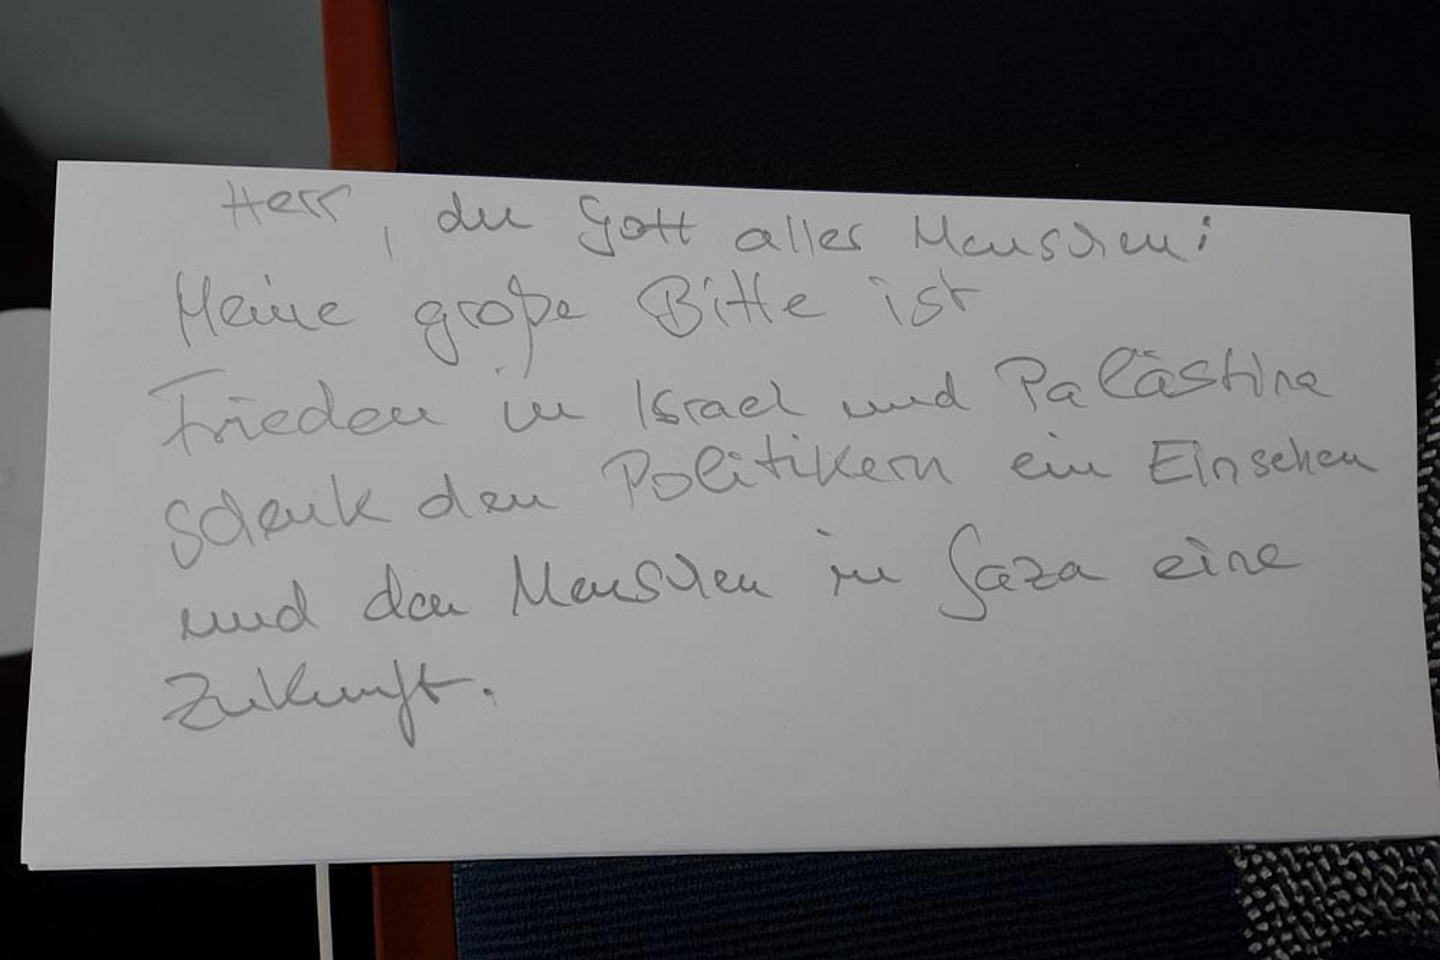 Herr, du Gott aller Menschen:
Meine große Bitte ist
Frieden in Israel und Palästina
schenk den Politikern ein Einsehen
und den Menschen in Gaza eine
Zukunft.